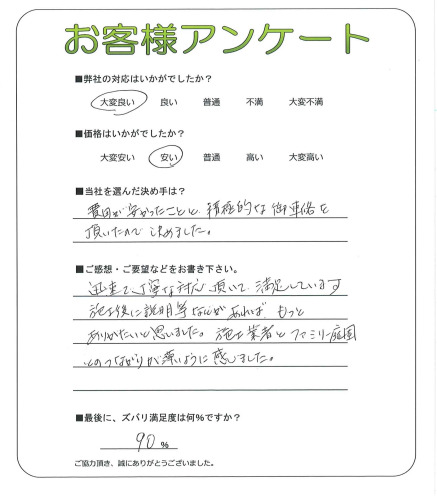 お客様アンケート
■弊社の対応はいかがでしたか?
大変良い 良い 普通 不満 大変不満
■価格はいかがでしたか?
大変安い 安い 普通 高い 大変高い
■当社を選んだ決め手は?
費用が安かったことと、積極的な御連絡を
頂いたので決めました。
■ご感想・ご要望などをお書き下さい。
迅速で丁寧な対応頂いて、満足しています
施工後に説明等なんかがあれば、もっと
ありがたいと思いました。施工業者とファミリー庭園
のつながりが薄いように感じました。
■最後に、ズバリ満足度は何%ですか?
90 %
ご協力頂き、誠にありがとうございました。